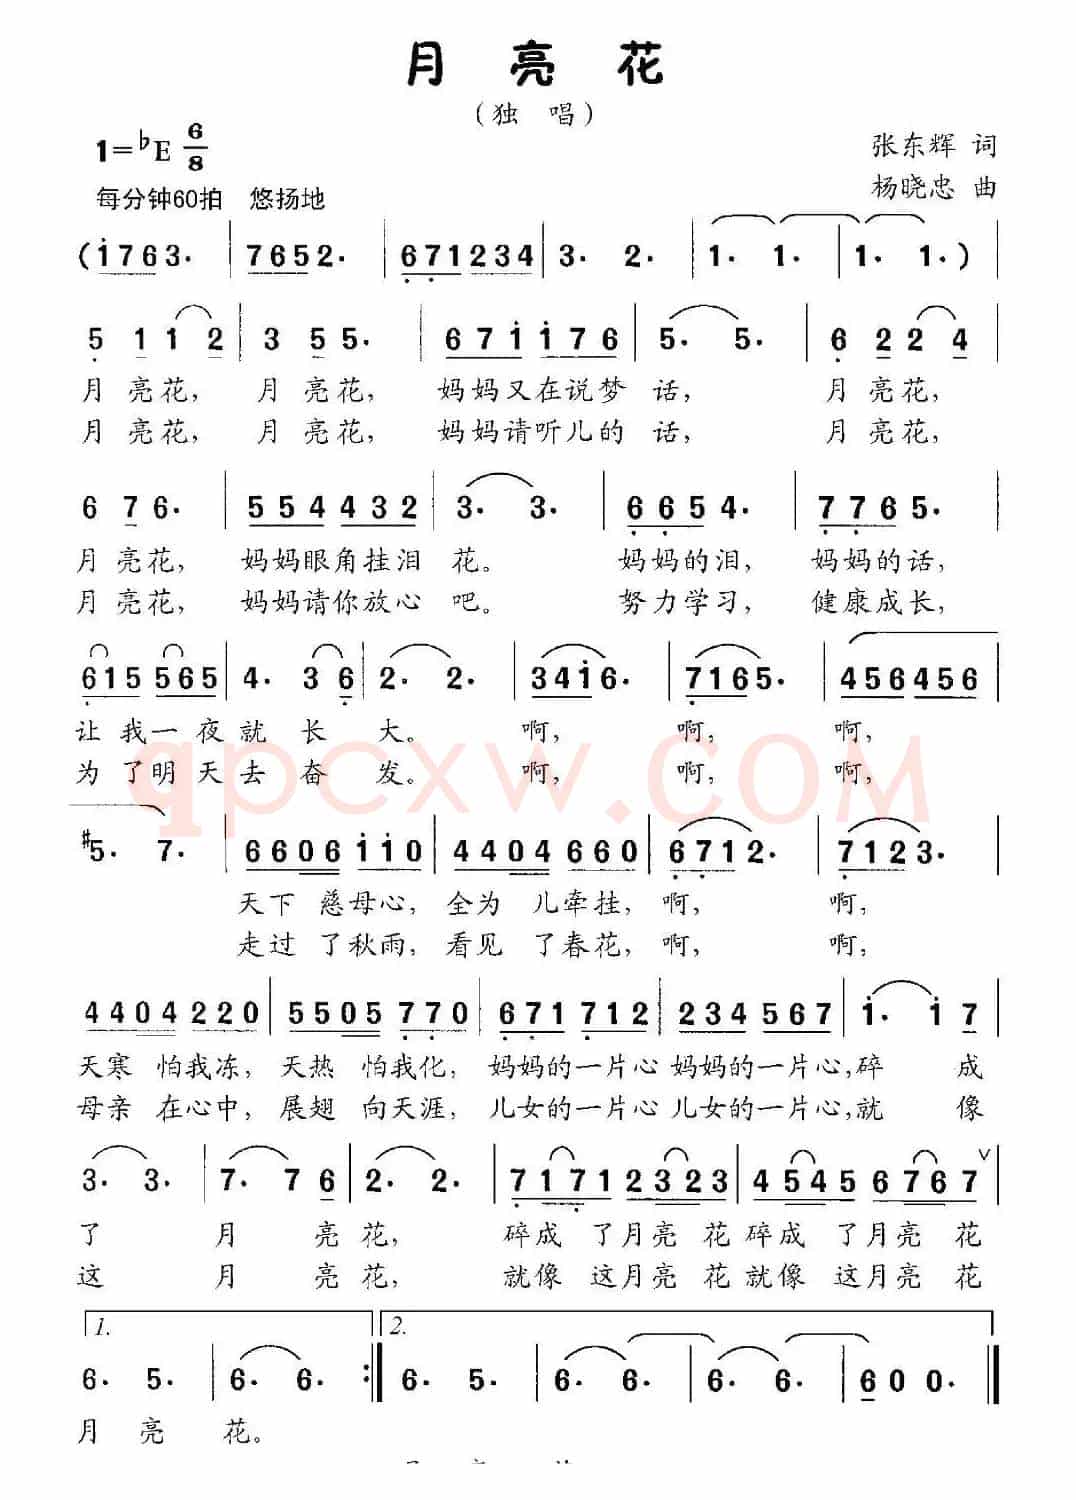 月 亮 花
（独 唱）
1=♭E 6/8
张东辉 词
每分钟60拍 悠扬地
杨晓忠 曲
( i 7 6 3. | 7 6 5 2. | 6 7 1 2 3 4 | 3. 2. | 1. 1. | 1. 1. )
5 1 1 2 | 3 5 5. | 6 7 i i 7 6 | 5. 5. | 6 2 2 4
月 亮花， 月 亮花， 妈妈又在说梦 话， 月 亮花，
月 亮花， 月 亮花， 妈妈请听儿的 话， 月 亮花，
6 7 6. | 5 5 4 4 3 2 | 3. 3. | 6 6 5 4. | 7 7 6 5.
月 亮花， 妈妈眼角挂泪 花。 妈妈的泪， 妈妈的话，
月 亮花， 妈妈请你放心 吧。 努力学习， 健康成长，
6 1 5 5 6 5 | 4. 3 6 | 2. 2. | 3 4 i 6. | 7 1 6 5. | 4 5 6 4 5 6
让 我一 夜就 长 大。 啊， 啊， 啊，
为 了明 天去 奋 发。 啊， 啊， 啊，
qpcxw.COM
#5. 7. | 6 6 0 6 i i 0 | 4 4 0 4 6 6 0 | 6 7 1 2. | 7 1 2 3.
天下 慈母心， 全为 儿牵挂， 啊， 啊，
走过 了秋雨， 看见 了春花， 啊， 啊，
4 4 0 4 2 2 0 | 5 5 0 5 7 7 0 | 6 7 1 7 1 2 | 2 3 4 5 6 7 | i. i 7
天寒 怕我冻， 天热 怕我化， 妈妈的一片心 妈妈的一片心，碎 成
母亲 在心中， 展翅 向天涯， 儿女的一片心 儿女的一片心，就 像
3. 3. | 7. 7 6 | 2. 2. | 7 1 7 1 2 3 2 3 | 4 5 4 5 6 7 6 7 ∨
了 月 亮 花， 碎成 了月亮 花 碎成 了月亮 花
这 月 亮 花， 就像 这月亮 花 就像 这月亮 花
1. 2.
6. 5. | 6. 6. :| 6. 5. | 6. 6. | 6. 6. | 6 0 0 0. ‖
月 亮 花。